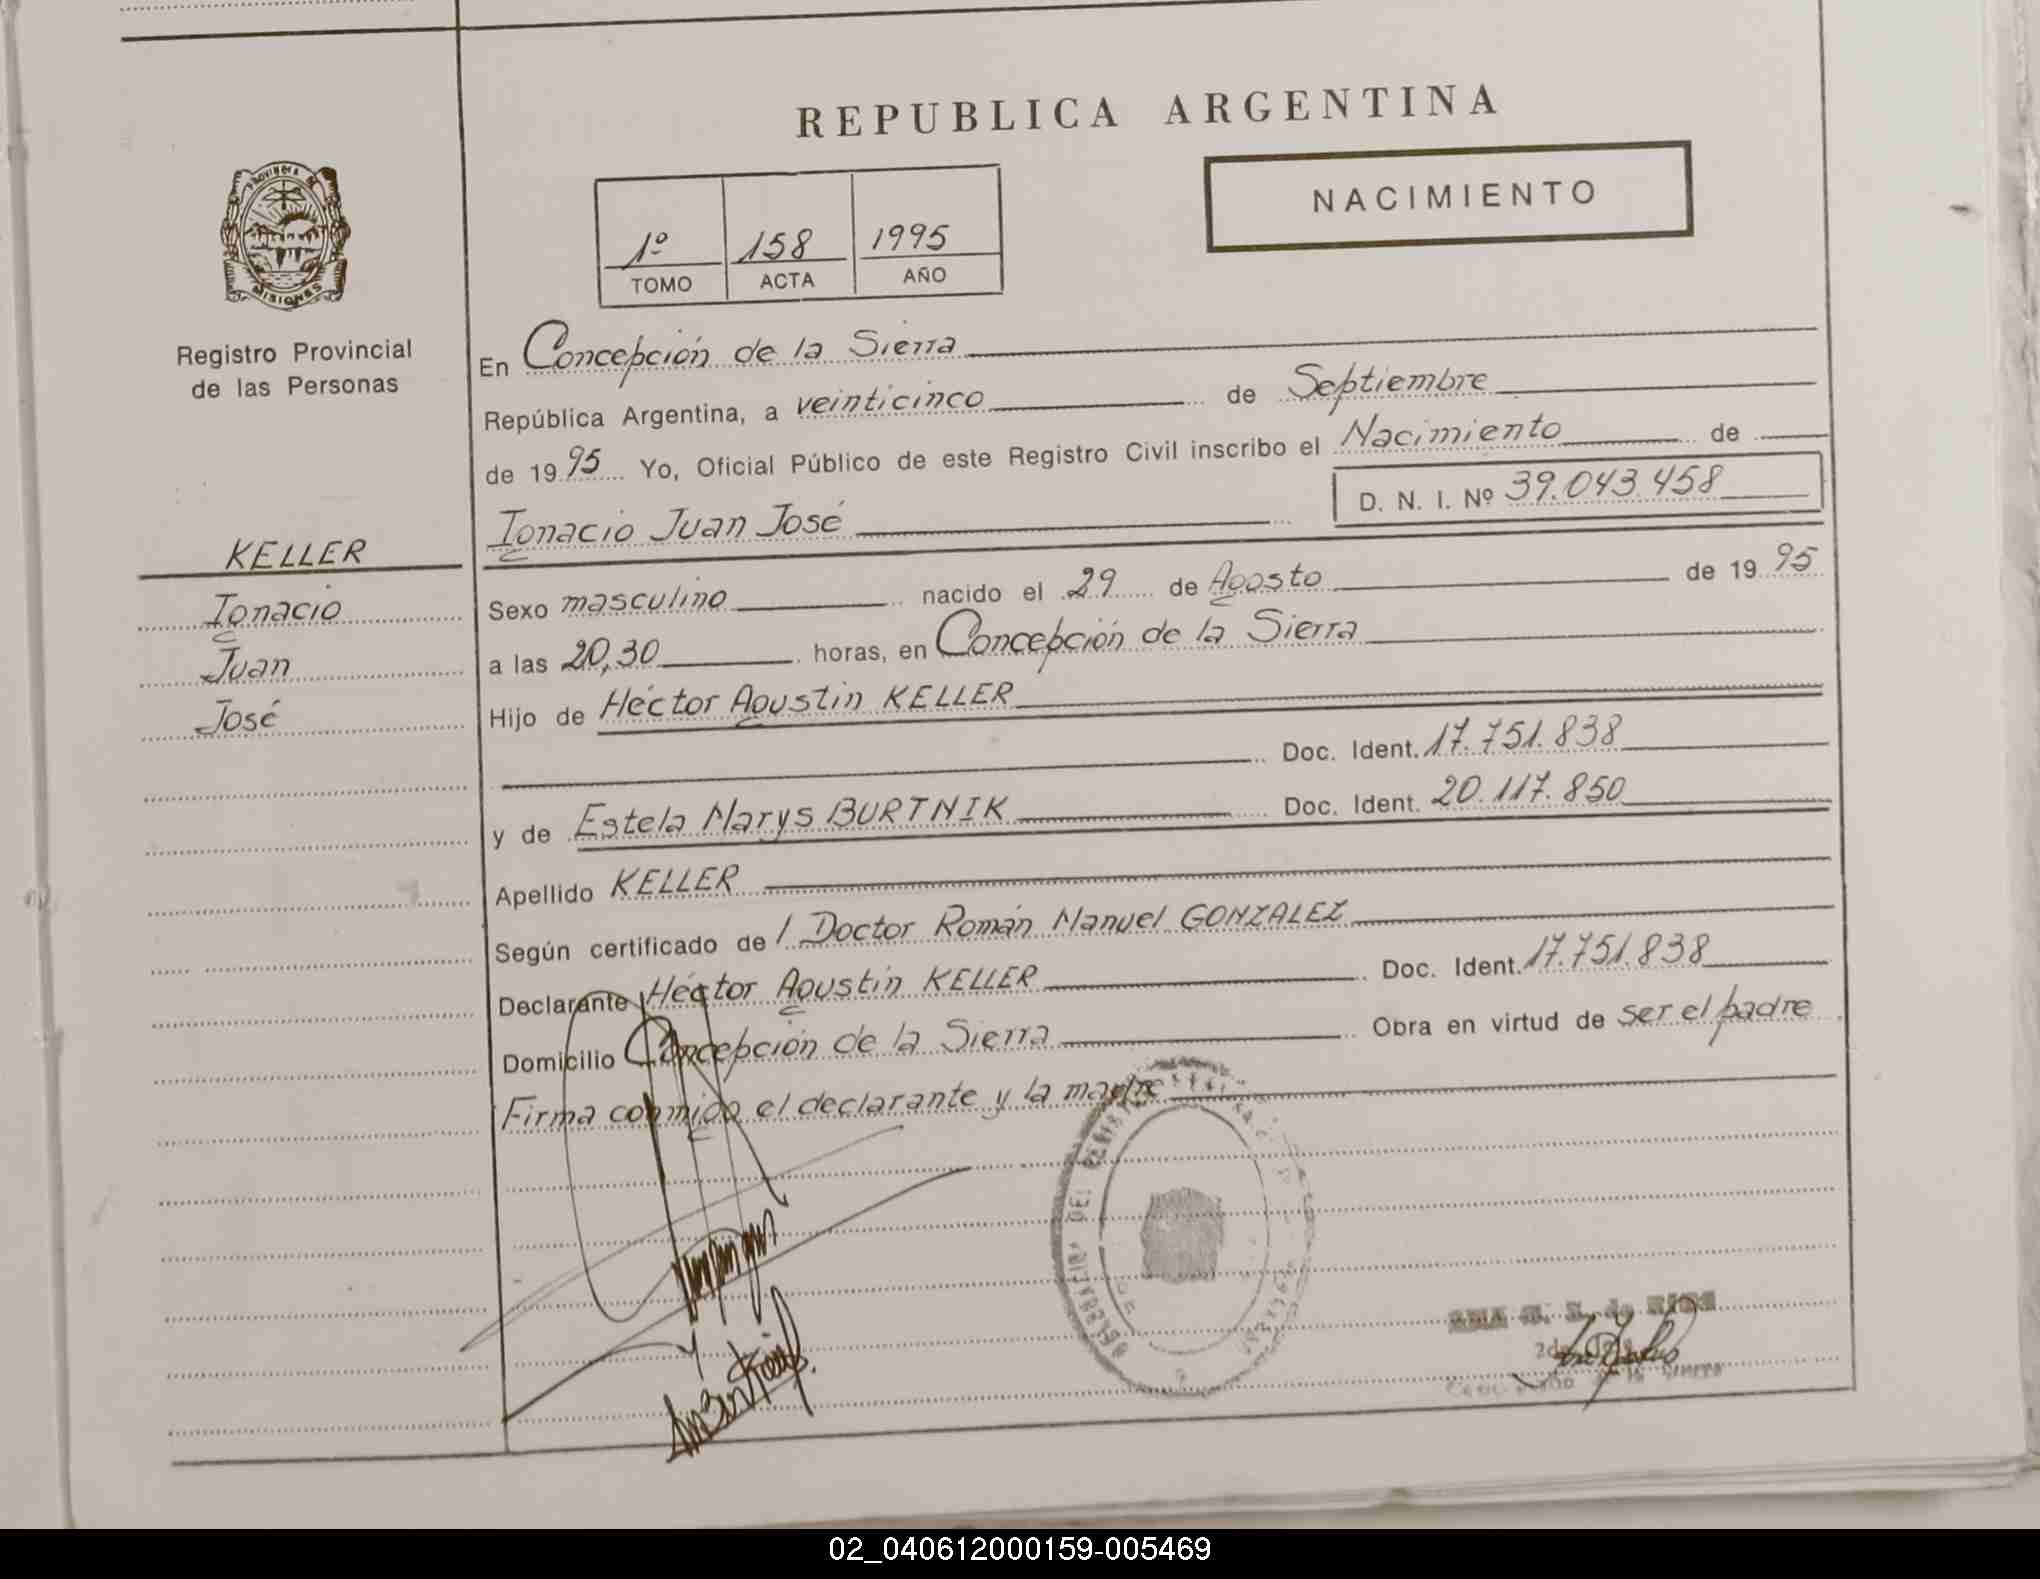 REPUBLICA ARGENTINA
PROVINCIA DE MISIONES
Registro Provincial
de las Personas
1º 158 1995
TOMO ACTA AÑO
NACIMIENTO
En Concepción de la Sierra
República Argentina, a veinticinco de Septiembre
de 19 95 Yo, Oficial Público de este Registro Civil inscribo el Nacimiento de
D. N. I. Nº 39.043.458
Ignacio Juan José
KELLER
Ignacio
Juan
José
Sexo masculino nacido el 29 de Agosto de 19 95
a las 20,30 horas, en Concepción de la Sierra
Hijo de Héctor Agustín KELLER
Doc. Ident. 17.751.838
y de Estela Marys BURTNIK Doc. Ident. 20.117.850
Apellido KELLER
Según certificado de l Doctor Román Manuel GONZALEZ
Declarante Héctor Agustín KELLER Doc. Ident. 17.751.838
Domicilio Concepción de la Sierra Obra en virtud de ser el padre
Firma conmigo el declarante y la madre
02_040612000159-005469